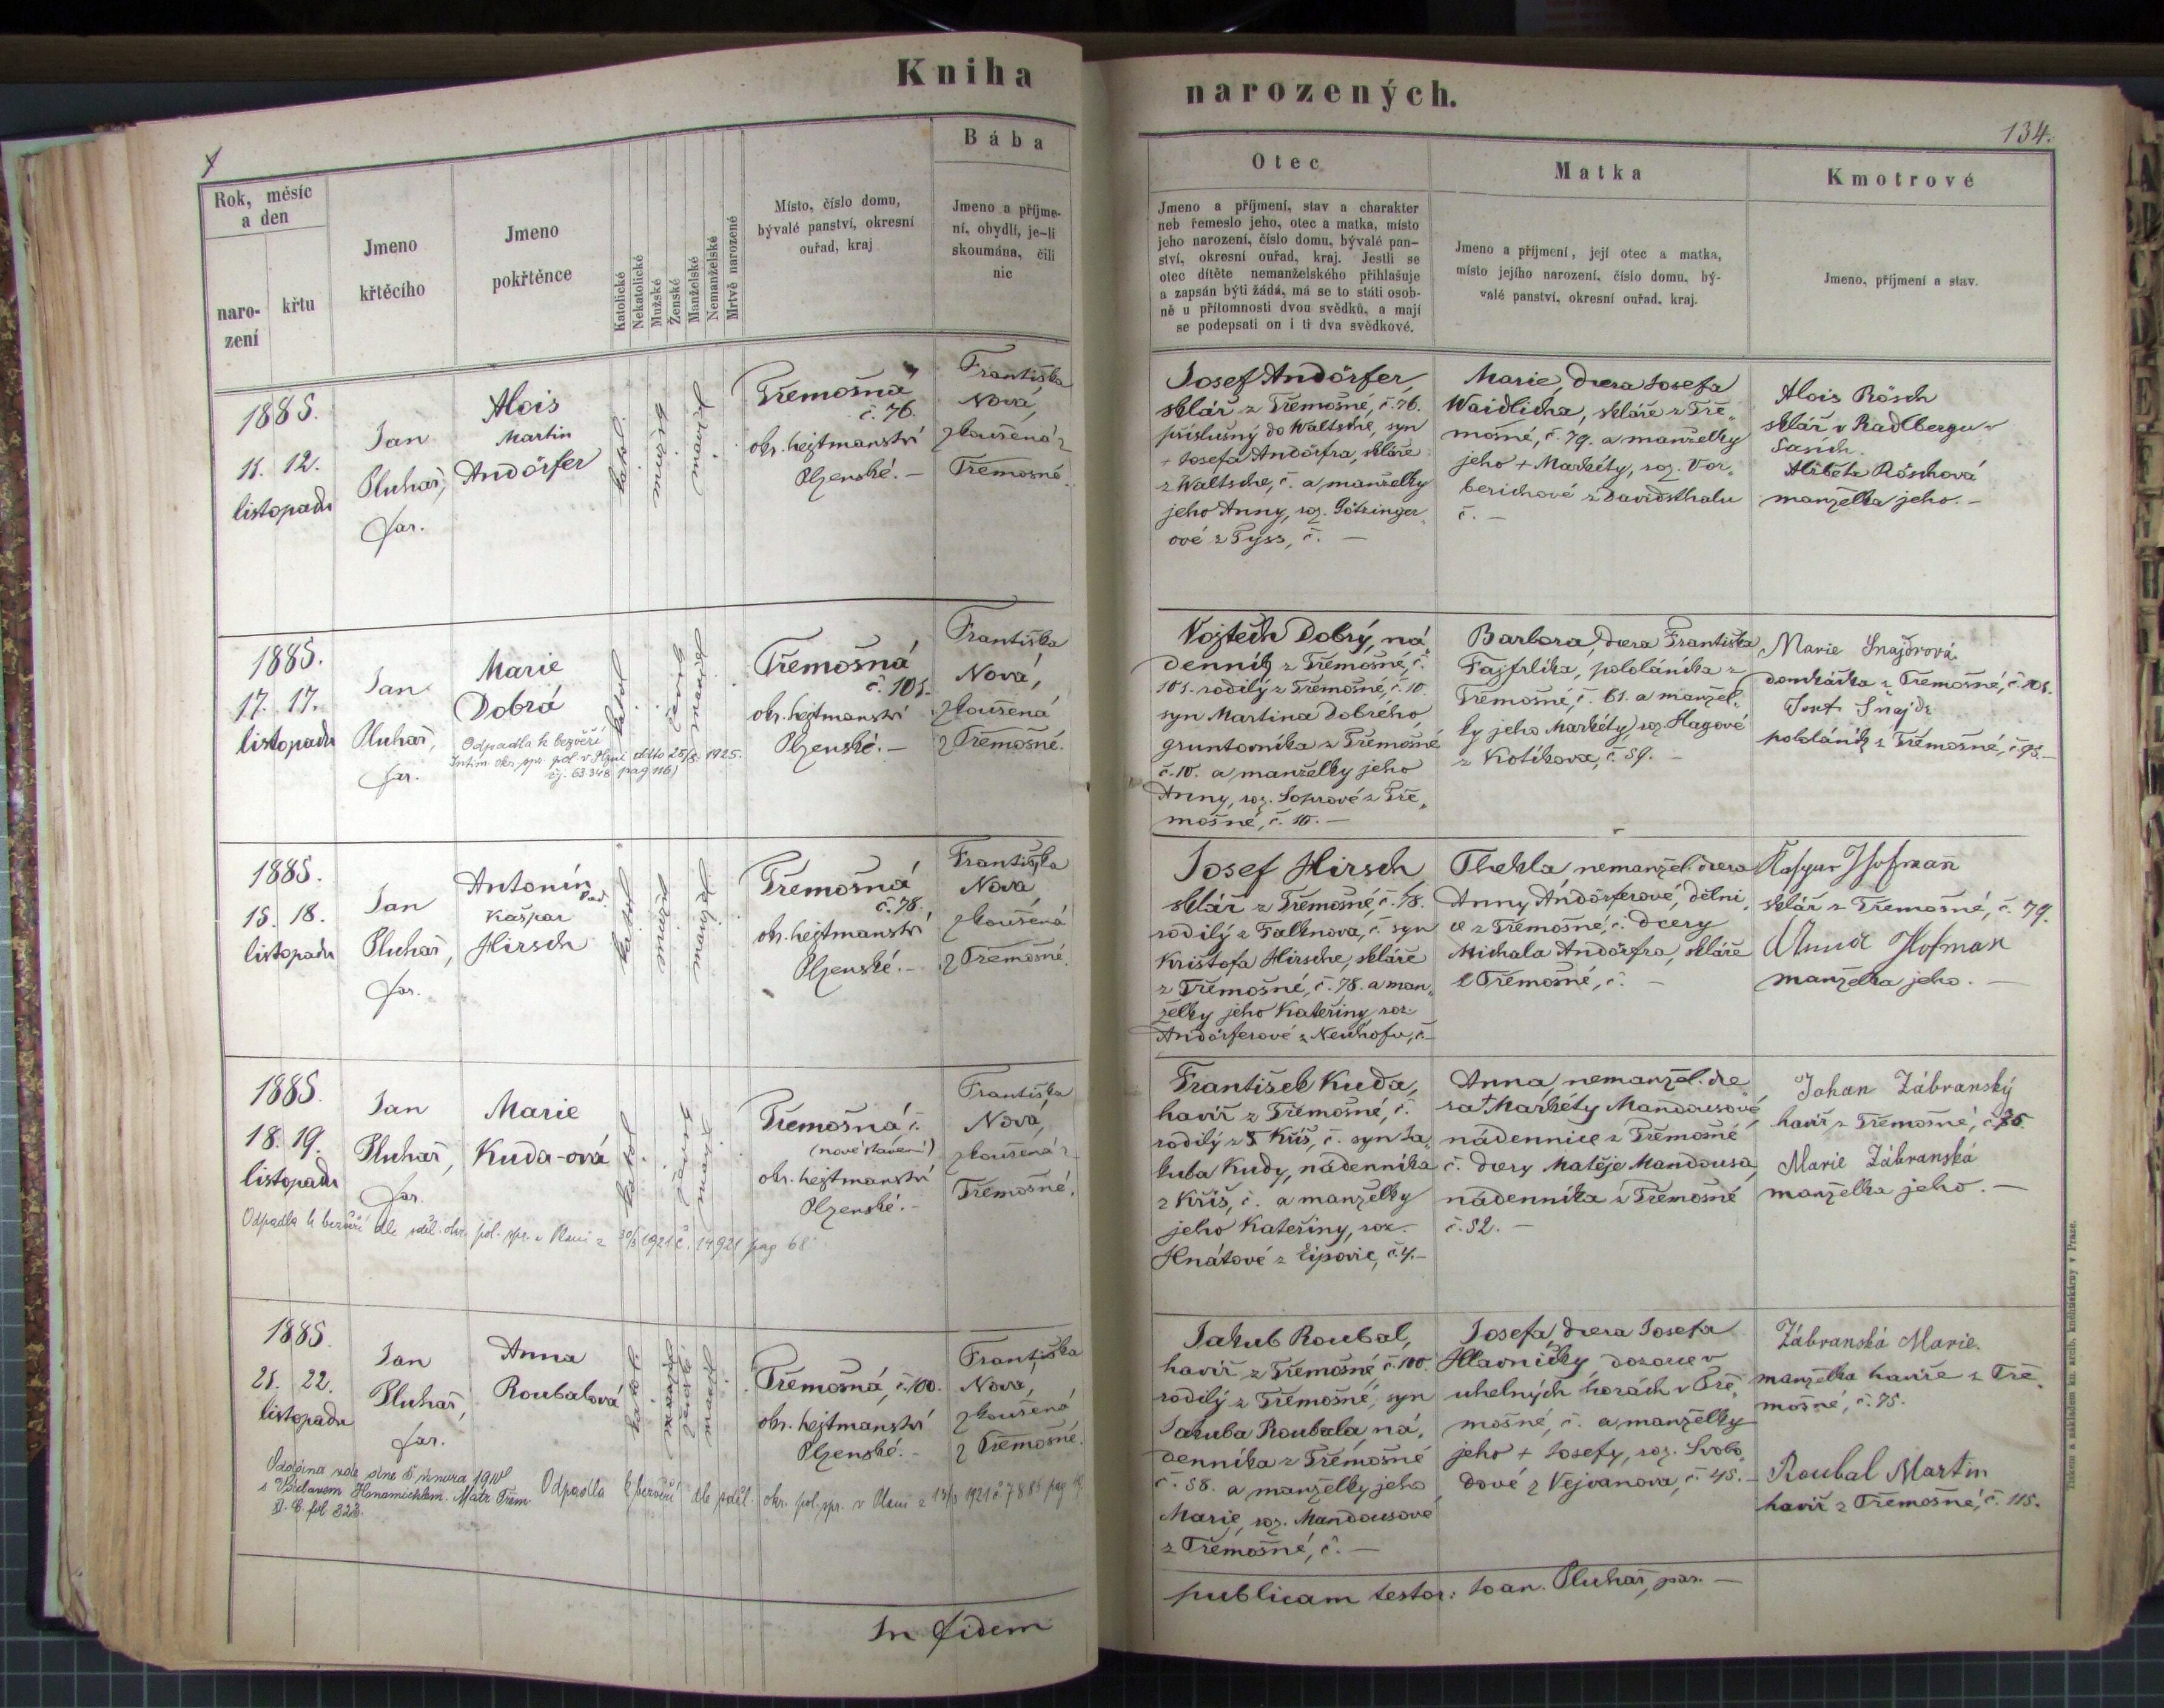 Kniha
narozených.
134.
Rok, měsíc
a den
naro-
zení
křtu
Jmeno
křtěcího
Jmeno
pokřtěnce
Katolické
Nekatolické
Mužské
Ženské
Manželské
Nemanželské
Mrtvě narozené
Místo, číslo domu,
bývalé panství, okresní
ouřad, kraj
Bába
Jmeno a příjme-
ní, obydlí, je-li
skoumána, čili
nic
Otec
Jmeno a příjmení, stav a charakter
neb řemeslo jeho, otec a matka, místo
jeho narození, číslo domu, bývalé pan-
ství, okresní ouřad, kraj. Jestli se
otec dítěte nemanželského přihlašuje
a zapsán býti žádá, má se to státi osob-
ně u přítomnosti dvou svědků, a mají
se podepsati on i ti dva svědkové.
Matka
Jmeno a příjmení, její otec a matka,
místo jejího narození, číslo domu, bý-
valé panství, okresní ouřad, kraj.
Kmotrové
Jmeno, příjmení a stav.
1885.
11. 12.
listopadu
Jan
Pluhař,
far.
Alois
Martin
Andörfer
katol.
Třemošná
č. 76.
okr. hejtmanství
Plzenské. –
Františka
Nová,
zkoušená z
Třemošné.
Josef Andörfer,
sklář z Třemošné, č. 76.
příslušný do Waltsche, syn
+ Josefa Andörfra, skláře
z Waltsche, č. a manželky
jeho Anny, roz. Götzinger
ové z Tyss, č. –
Marie, dcera Josefa
Waidlicha, skláře z Tře„
mošné, č. 79. a manželky
jeho + Markéty, roz. Vor„
berichové z Davidsthalu
č. –
Alois Rösch
sklář v Radlbergu
manželka jeho. –
1885.
17. 17.
listopadu
Jan
Pluhař,
far.
Marie
Dobrá
Odpadla k bezvěří
čj. 63.348 pag 116)
katol
Třemošná
č. 101.
okr. hejtmanství
Plzenské. –
Františka
Nová,
zkoušená
z Třemošné.
Vojtěch Dobrý, ná„
denník z Třemošné, č.
101. rodilý z Třemošné, č. 10.
syn Martina Dobrého,
gruntovníka z Třemošné
č. 10. a manželky jeho
Anny, roz. Soprové z Tře„
mošné, č. 10. –
Barbora, dcera Františka
Fajfrlíka, pololáníka z
Třemošné, č. 61. a manžel„
ky jeho Markéty, roz. Hagové
z Kotíkova, č. 59. –
Marie Šnajdrová
domkářka z Třemošné, č. 101.
pololáník z Třemošné, č. 95. –
1885.
15. 18.
listopadu
Jan
Pluhař,
far.
Antonín
Kašpar
Hirsch
katol
Třemošná
č. 78.
okr. hejtmanství
Plzenské. –
Františka
Nová
zkoušená
z Třemošné.
Josef Hirsch
sklář z Třemošné, č. 78.
rodilý z Falknova, č. syn
Krištofa Hirsche, skláře
z Třemošné, č. 78. a man„
želky jeho Kateřiny, roz.
Andörferové z Neuhofu, č. –
Thekla, nemanžel. dcera
Anny Andörferové, dělni„
ce z Třemošné, č. dcery
Michala Andörfra, skláře
z Třemošné, č. –
Kaspar Hofmañ
sklář z Třemošné, č. 79.
Anna Hofman
manželka jeho. –
1885.
18. 19.
listopadu
Jan
Pluhař,
far.
Marie
Kuda-ová
Odpadla k bezvěří dle sděl. okr. pol. spr. v Plzni z 30/3 1921 č. 14921 pag 68
katol
Třemošná č.
(nové stavení)
okr. hejtmanství
Plzenské. –
Františka
Nová,
zkoušená z
Třemošné.
František Kuda,
havíř z Třemošné, č.
rodilý z Kříš, č. syn Ja„
kuba Kudy, nádenníka
z Kříš, č. a manželky
jeho Kateřiny, roz.
Hnátové z Ejpovic, č. 4. –
Anna, nemanžel. dce
ra + Markéty Mandousové,
nádennice z Třemošné
č. dcery Matěje Mandousa,
nádenníka z Třemošné
č. 52. –
Johan Zábranský
havíř z Třemošné, č. 75
Marie Zábranská
manželka jeho. –
1885.
21. 22.
listopadu
Jan
Pluhař,
far.
Anna
Roubalová
s Václavem Hanamichlem. Matr. Třem
Odpadla k bezvěří dle sděl. okr. pol. spr. v Plzni z 13/3 1921 č 7885 pag
katol.
Třemošná, č. 100.
okr. hejtmanství
Plzenské. –
Františka
Nová,
zkoušená
z Třemošné.
Jakub Roubal,
havíř z Třemošné, č. 100.
rodilý z Třemošné, syn
Jakuba Roubala, ná„
denníka z Třemošné
č. 58. a manželky jeho
Marie, roz. Mandousové
z Třemošné, č. –
Josefa, dcera Josefa
Hlavničky, dozorce v
uhelných horách v Tře„
mošné, č. a manželky
jeho + Josefy, roz. Svobo„
dové z Vejvanova, č. 45. –
Zábranská Marie.
manželka havíře z Tře„
mošné, č. 75.
Roubal Martin
havíř z Třemošné, č. 115.
In fidem
publicam testor: Joan. Pluhař, par. –
Tiskem a nákladem kn. arcib. knihtiskárny v Praze.